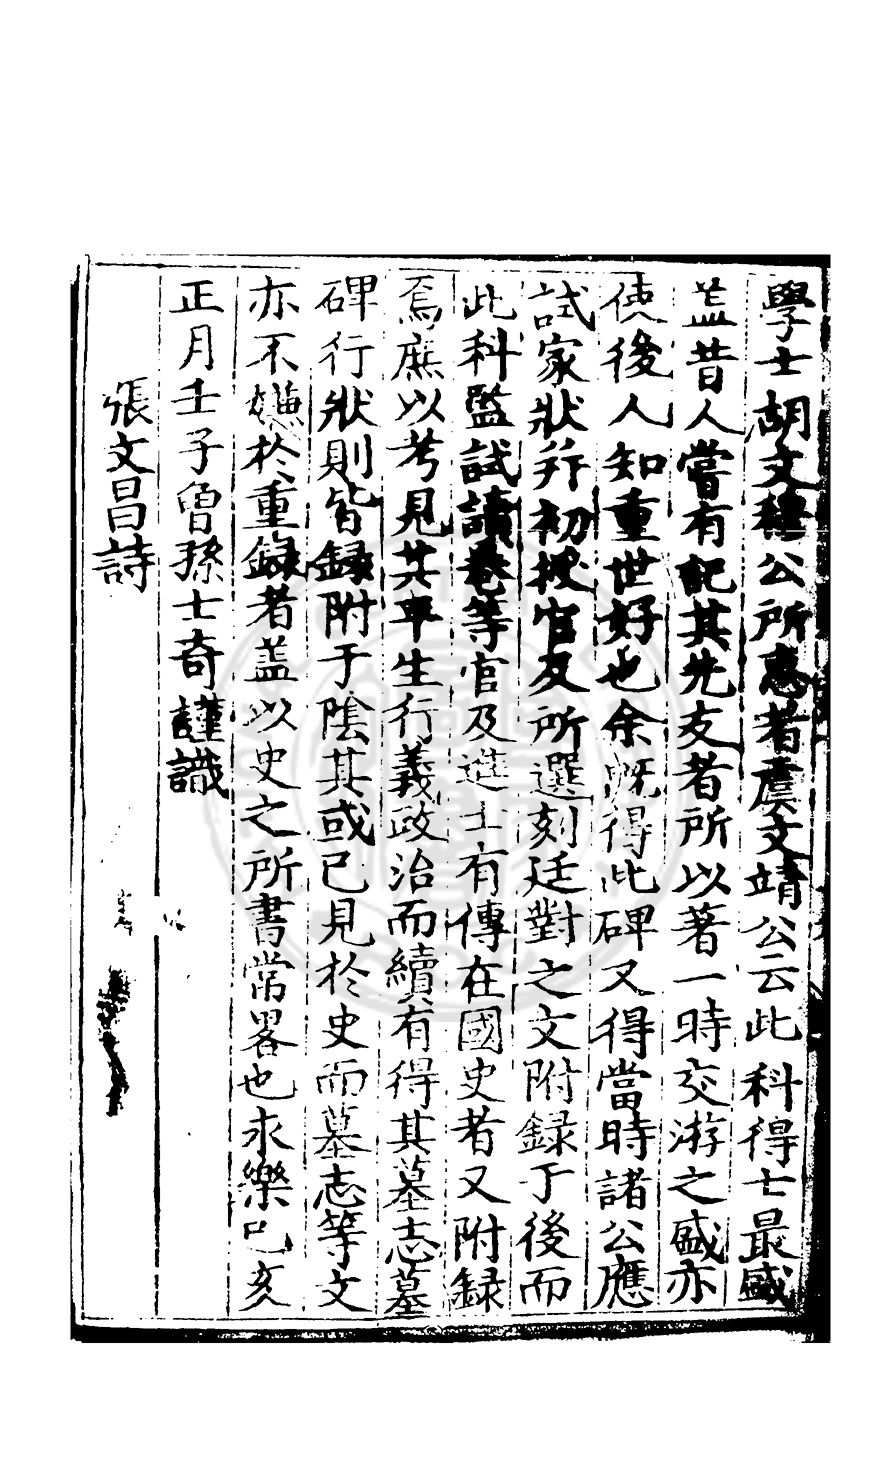 學士胡文穆公所惠者虞文靖公云此科得士最盛
葢昔人嘗有記其先友者所以著一時交游之盛亦
使後人知重世好也余既得此碑又得當時諸公應
試家狀并初授官及所選刻廷對之文附錄于後而
此科監試讀卷等官及進士有傳在國史者又附録
焉庶以考見其平生行義政治而續有得其墓志墓
碑行狀則皆録附于隂其或已見於史而墓志等文
亦不嫌於重録者葢以史之所書常畧也永樂己亥
正月壬子曾孫士奇謹識
張文昌詩